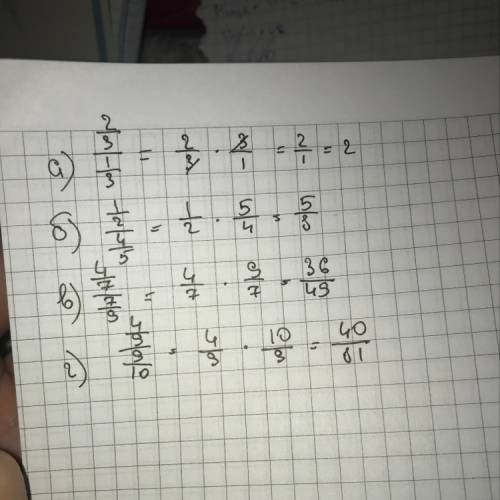 а) 2/3 / 1/3 = 2/3 · 3/1 = 2/1 = 2
б) 1/2 / 4/5 = 1/2 · 5/4 = 5/8
в) 4/7 / 7/9 = 4/7 · 9/7 = 36/49
г) 4/9 / 9/10 = 4/9 · 10/9 = 40/81